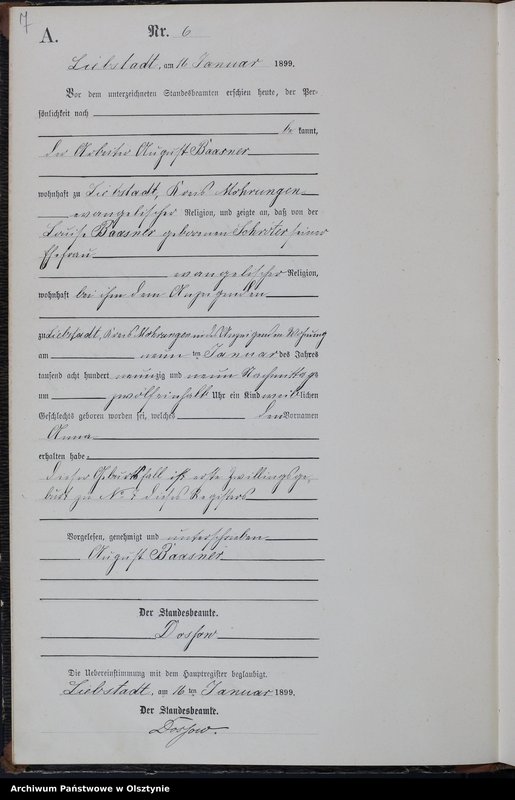 7
A.
Nr. 6
Liebstadt, am 16 Januar 1899.
Vor dem unterzeichneten Standesbeamten erschien heute, der Per-
sönlichkeit nach
be kannt,
der Arbeiter August Baasner
wohnhaft zu Liebstadt, Kreis Mohrungen
evangelischer Religion, und zeigte an, daß von der
Louise Baasner geborenen Schröter seiner
Ehefrau
evangelischer Religion,
wohnhaft bei ihm dem Anzeigenden
zu Liebstadt, Kreis Mohrungen in des Anzeigenden Wohnung
am neun ten Januar des Jahres
tausend acht hundert neunzig und neun Nachmittags
um zwölfeinhalb Uhr ein Kind weiblichen
Geschlechts geboren worden sei, welches den Vornamen
Anna
erhalten habe.
Dieser Geburtsfall ist erste Zwillingsge-
burt zu No 7 dieses Registers
Vorgelesen, genehmigt und unterschrieben
August Baasner
Der Standesbeamte.
Dossow
Die Uebereinstimmung mit dem Hauptregister beglaubigt.
Liebstadt, am 16 ten Januar 1899.
Der Standesbeamte.
Dossow.
Archiwum Państwowe w Olsztynie